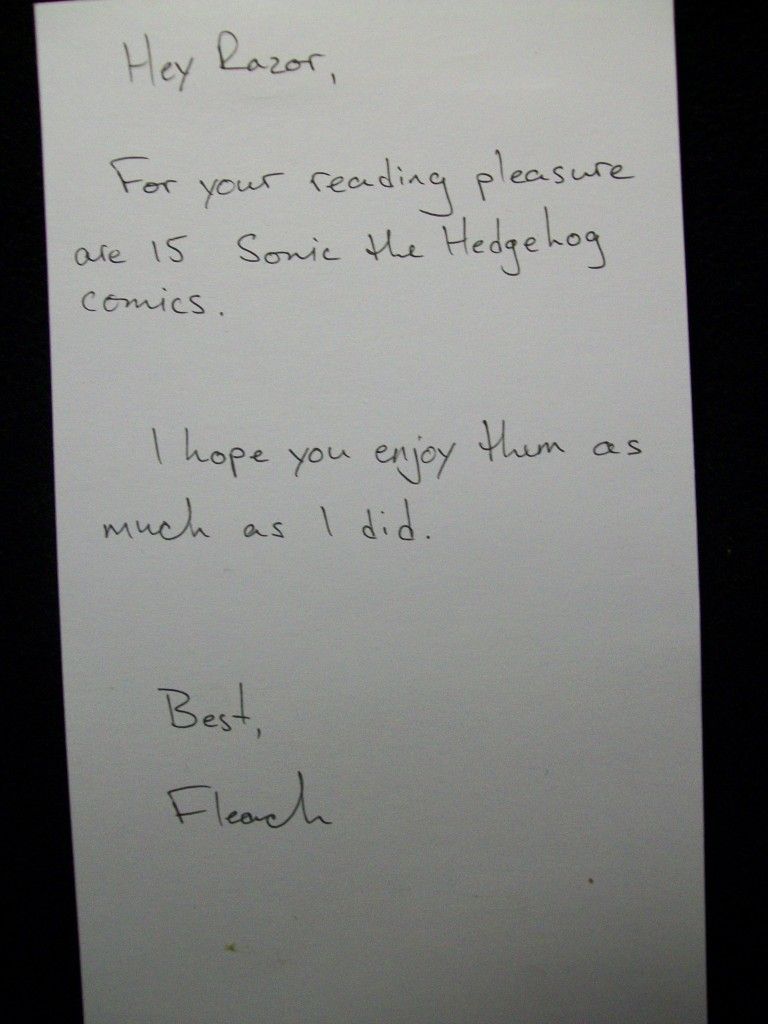 Hey Razor,
For your reading pleasure
are 15 Sonic the Hedgehog
comics.
I hope you enjoy them as
much as I did.
Best,
Fleach